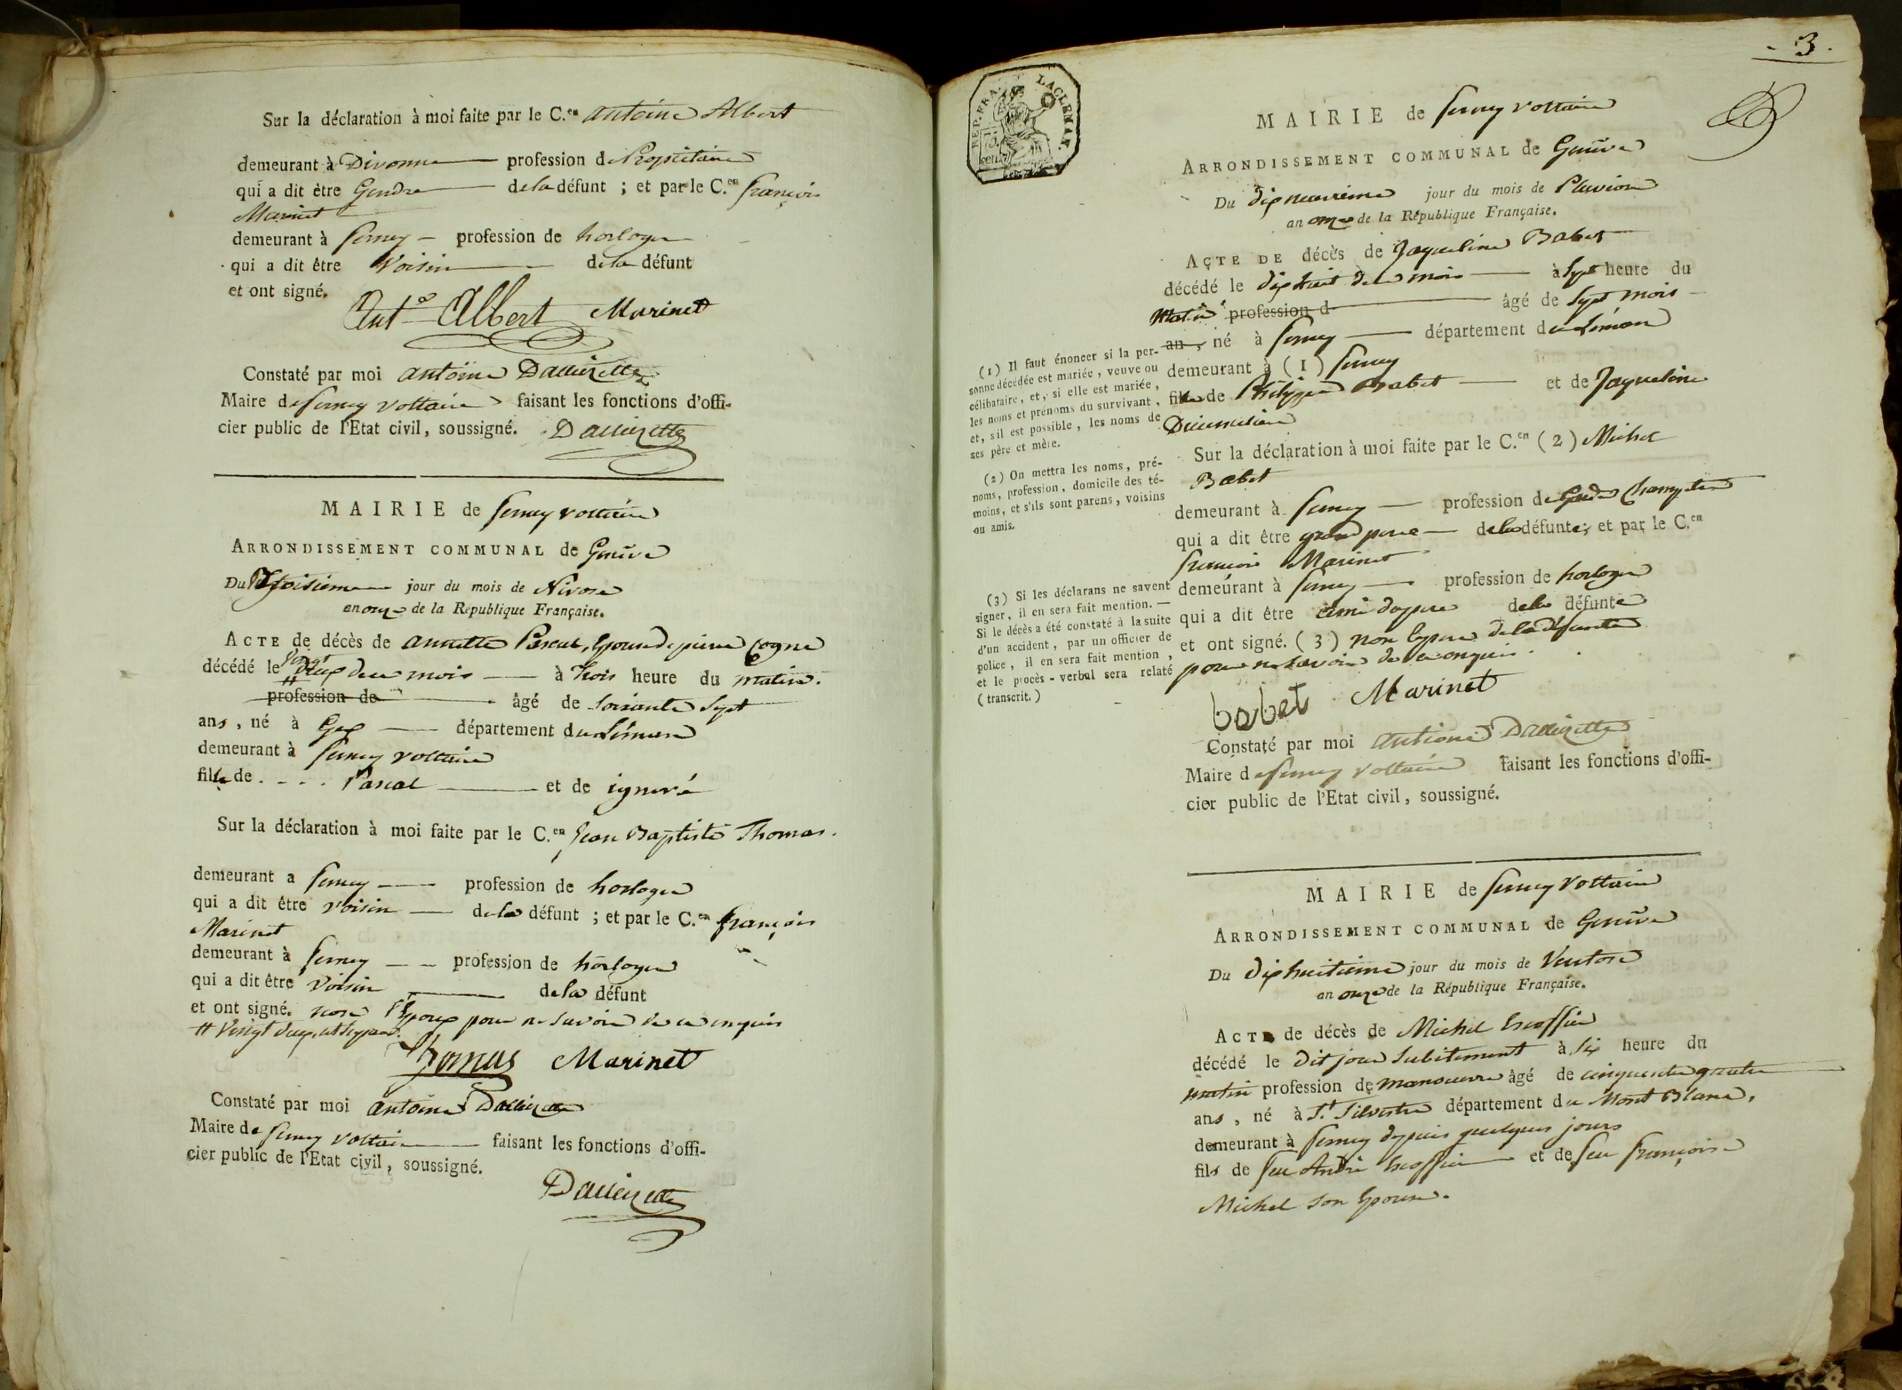 Sur la déclaration à moi faite par le C.en antoine Albert
demeurant à Divonne profession de Propriétaire
qui a dit être Gendre de la défunt ; et par le C.en françois
Marinet
demeurant à ferney profession de horloger
qui a dit être Voisin de la défunt
et ont signé.
Ant.e Albert Marinet
Constaté par moi antoine
Maire de ferney voltaire faisant les fonctions d'offi-
cier public de l'Etat civil, soussigné.
MAIRIE de ferney voltaire
ARRONDISSEMENT COMMUNAL de Genève
Du jour du mois de Nivose
an onze de la République Française.
ACTE de décès de annette Pascal, Epouse de pierre Cogne
décédé le du mois à trois heure du matin.
profession de âgé de soixante sept
ans, né à Gex département du Léman
demeurant à ferney voltaire
fille de . . . . Pascal et de ignoré
Sur la déclaration à moi faite par le C.en Jean Baptiste Thomas.
demeurant a ferney profession de horloger
qui a dit être voisin de la défunt ; et par le C.en françois
Marinet
demeurant à ferney profession de horloger
qui a dit être voisin de la défunt
et ont signé. non l'Epoux pour ne savoir de ce enquis
Thomas Marinet
Constaté par moi antoine
Maire de ferney voltaire faisant les fonctions d'offi-
cier public de l'Etat civil, soussigné.
- 3 -
REP. FRA.
MAIRIE de ferney voltaire
ARRONDISSEMENT COMMUNAL de Genève
Du dixneuvieme jour du mois de Pluviose
an onze de la République Française.
ACTE DE décès de Jaqueline Babet
décédé le dixhuit de ce mois à sept heure du
matin profession d âgé de sept mois
an , né à ferney département du Léman
demeurant à (1) ferney
fille de Philippe Babet et de Jaqueline
Sur la déclaration à moi faite par le C.en (2) Michel
Babet
demeurant à ferney profession de Garde Champetre
qui a dit être grand pere de la défunte; et par le C.en
françois Marinet
demeurant à ferney profession de horloger
qui a dit être ami du pere de la défunte
et ont signé. (3) non le pere de la défunte
pour ne savoir de ce enquis.
babet Marinet
Constaté par moi antoine
Maire de ferney voltaire faisant les fonctions d'offi-
cier public de l'Etat civil, soussigné.
(1) Il faut énoncer si la per-
sonne décédée est mariée, veuve ou
célibataire, et, si elle est mariée,
les noms et prénoms du survivant,
et, s'il est possible, les noms de
ses père et mère.
(2) On mettra les noms, pré-
noms, profession, domicile des té-
moins, et s'ils sont parens, voisins
ou amis.
(3) Si les déclarans ne savent
signer, il en sera fait mention. —
Si le décès a été constaté à la suite
d'un accident, par un officier de
police, il en sera fait mention,
et le procès-verbal sera relaté
(transcrit.)
MAIRIE de ferney voltaire
ARRONDISSEMENT COMMUNAL de Genève
Du dixhuitieme jour du mois de Ventose
an onze de la République Française.
ACTE de décès de Michel Escoffier
décédé le dit jour subitement à six heure du
matin profession de manoeuvre âgé de cinquante quatre
ans, né à St. Silvestre département du Mont Blanc,
demeurant à ferney depuis quelques jours
fils de feu André Escoffier et de feu françoise
Michel son Epouse.